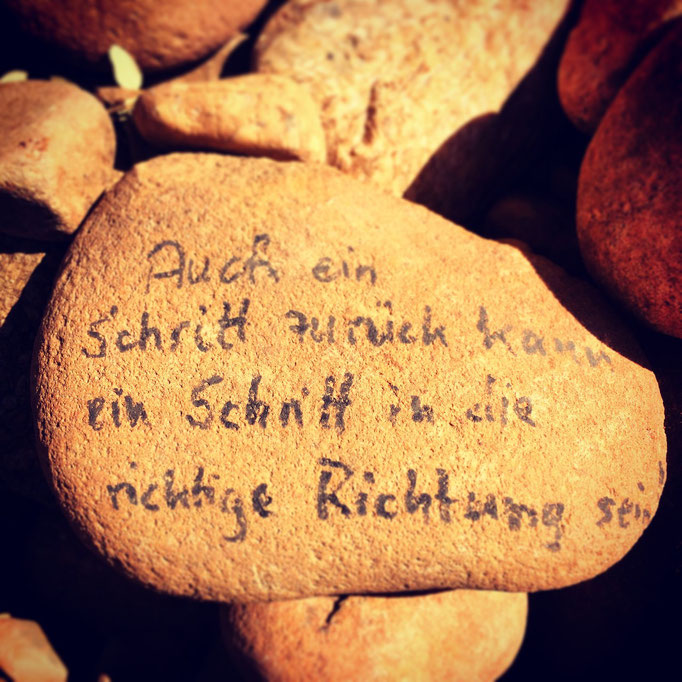 Auch ein
Schritt zurück kann
ein Schritt in die
richtige Richtung sein